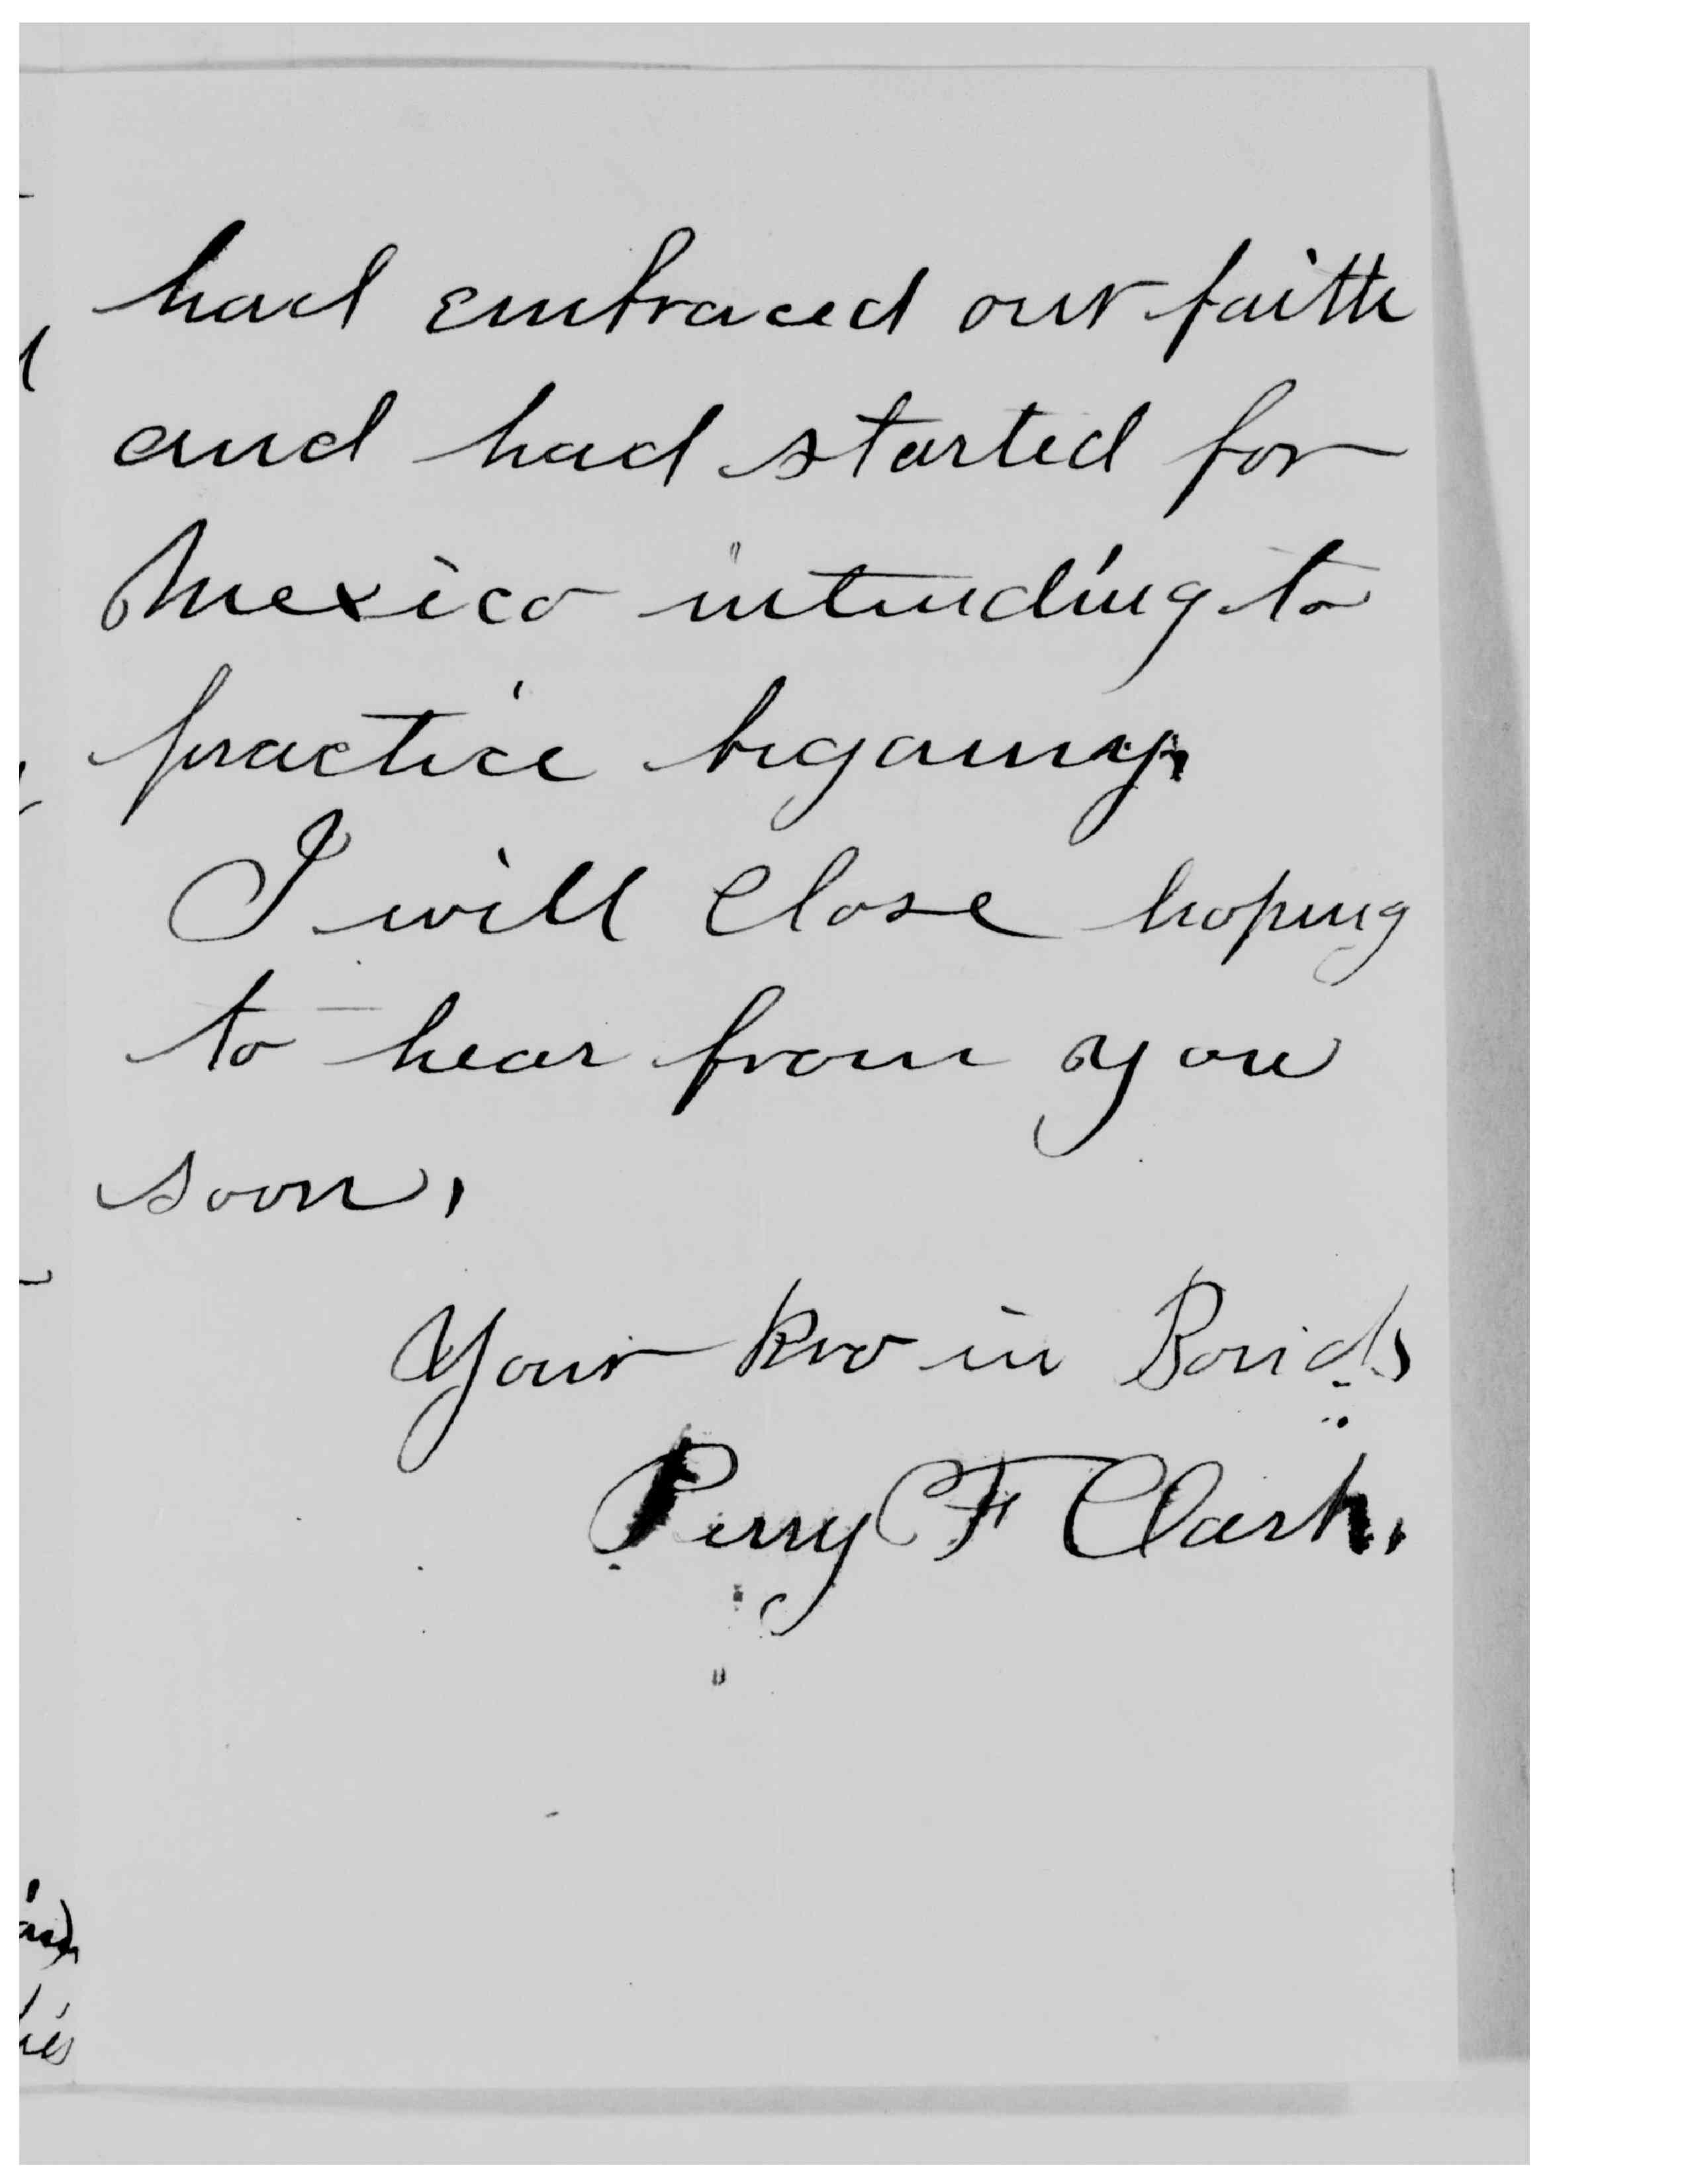 had embraced our faith
and had started for
Mexico intending to
practice bigamy.
I will close hoping
to hear from you
soon,
Your bro in Bonds
Perry F Clark.